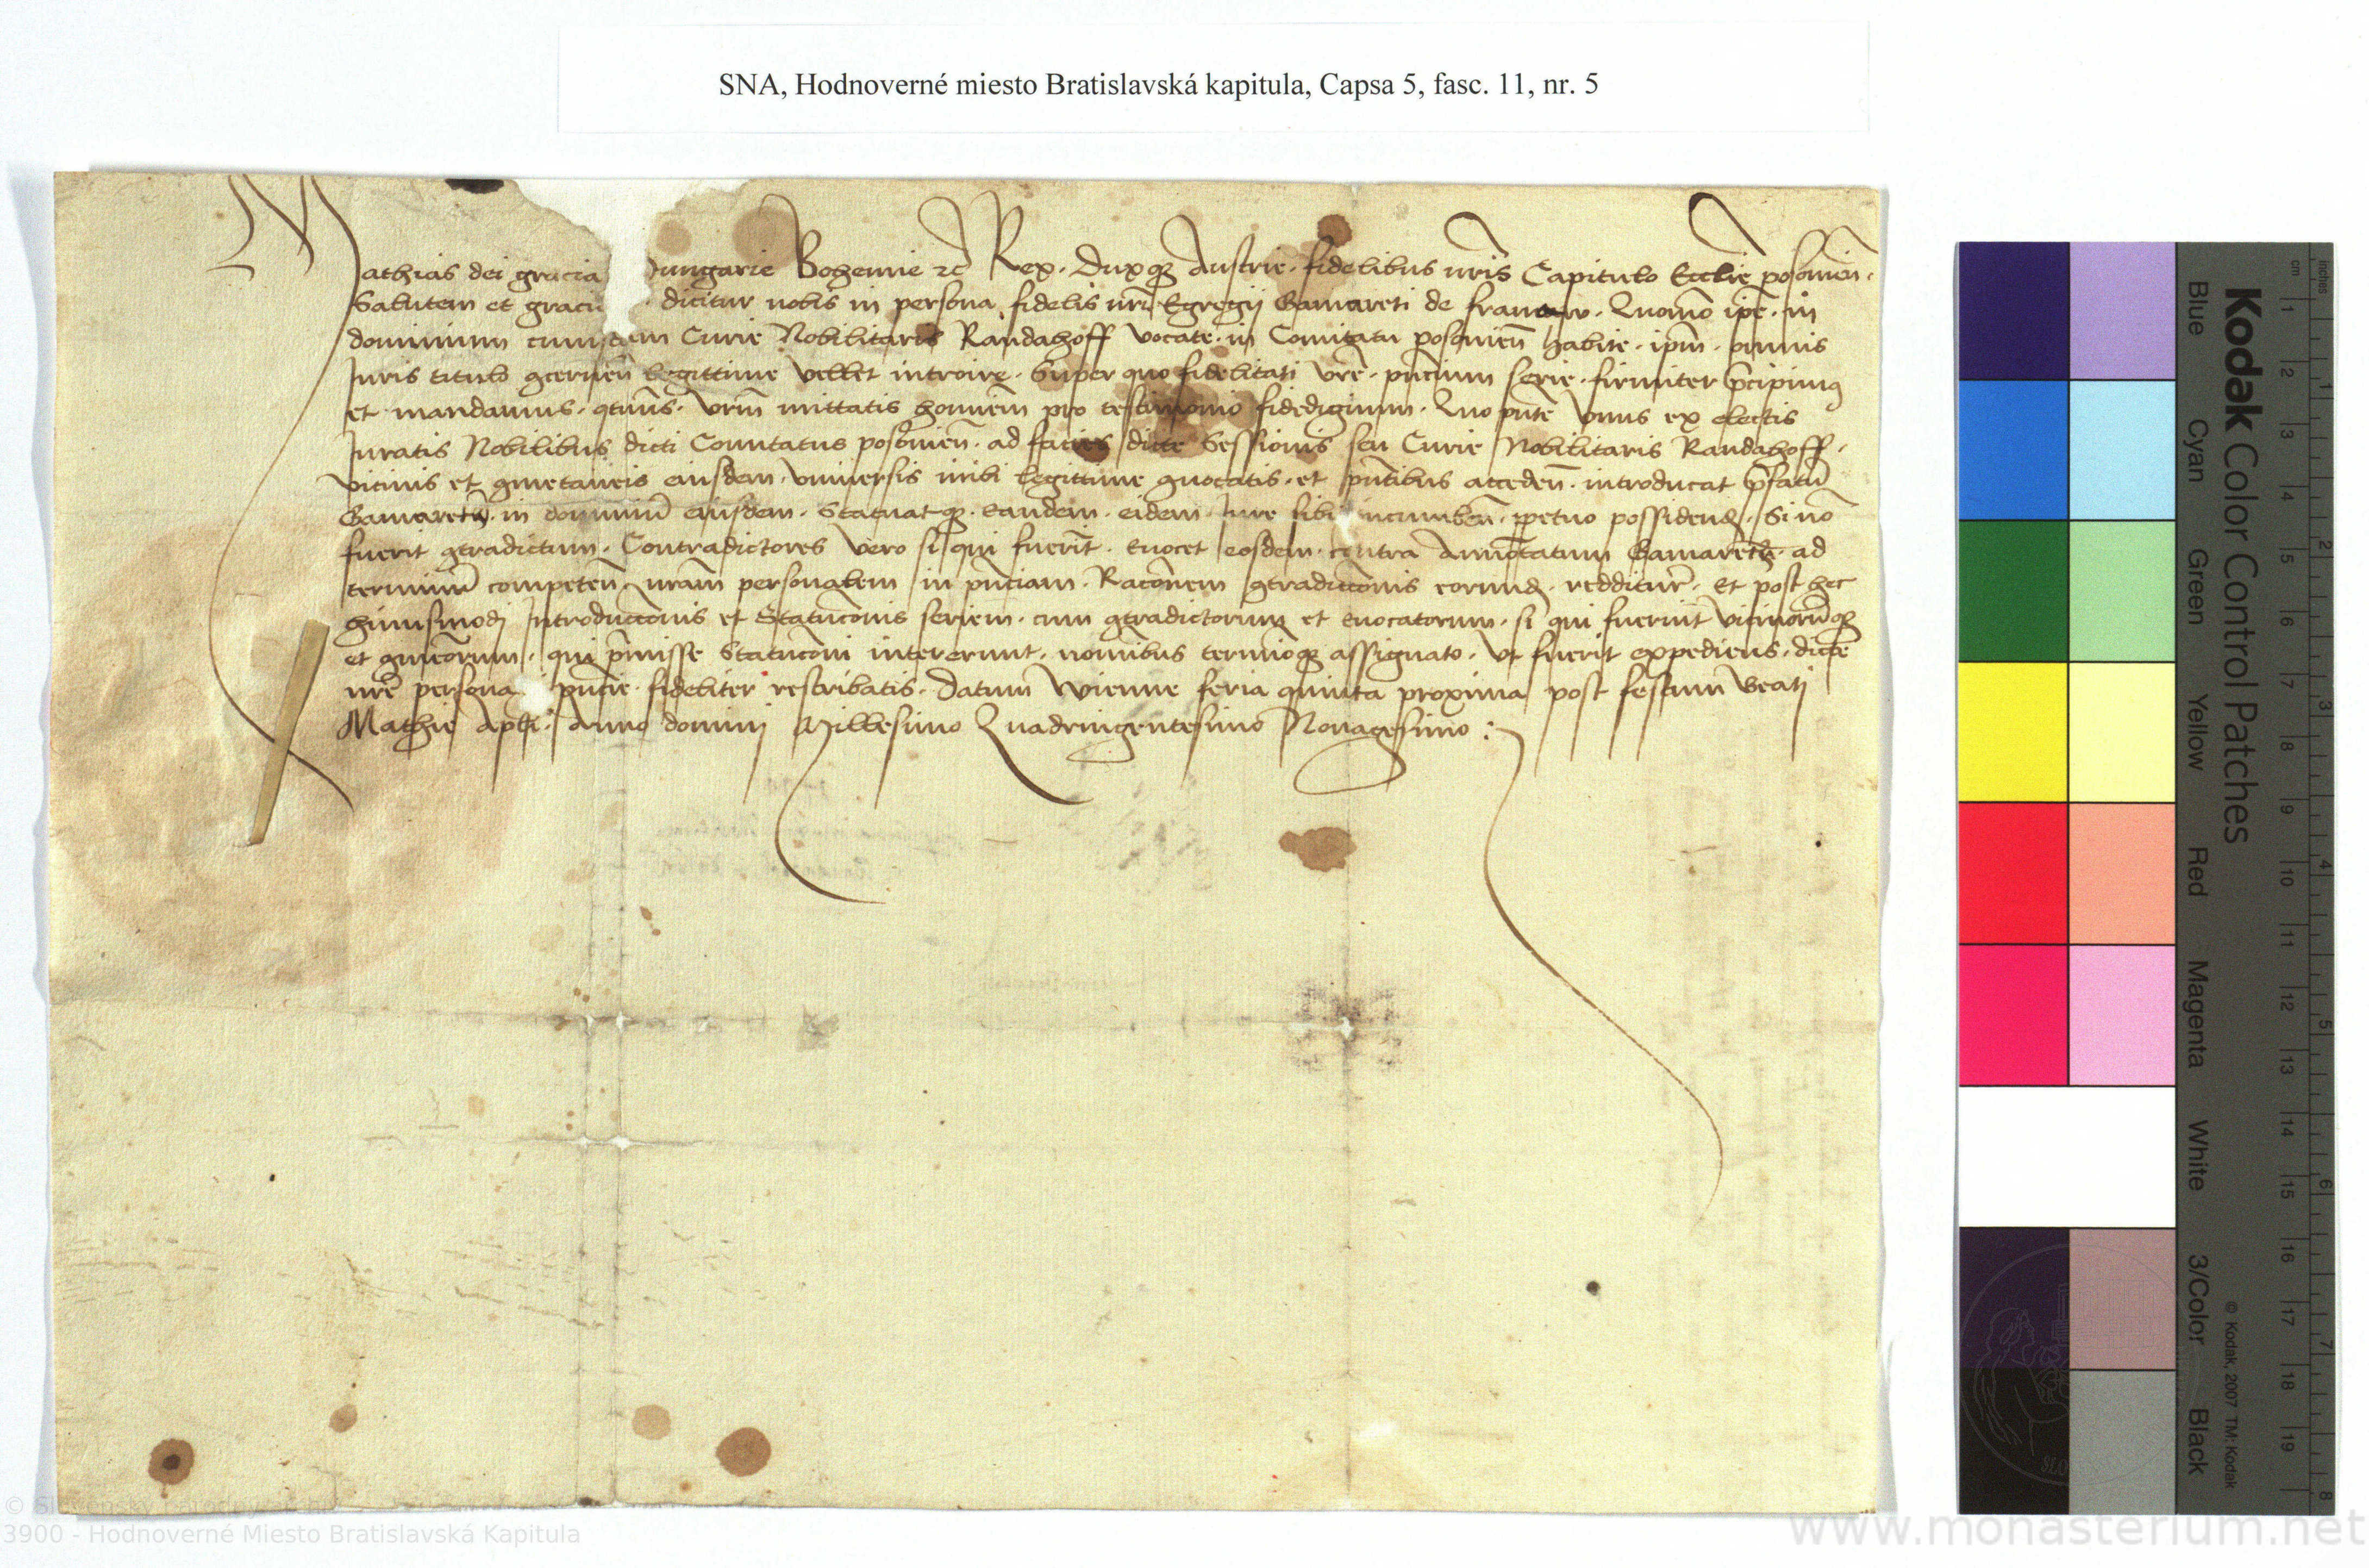 SNA, Hodnoverné miesto Bratislavská kapitula, Capsa 5, fasc. 11, nr. 5
Mathias dei gracia Hungarie Bohemie ꝛc̃ Rex. Duxqꝫ Austrie. fidelibus nr̃is Capitulo Eccl̃ie posonien̄.
Salutem et graci dicitur nobis in persona fidelis nr̃i Egregii Gamareti de Quomō ip̃e. in
dominium cuiusdam Curie Nobilitaris Randahoff vocate. in Comitatu posonien̄ habite. ip̄m. omnis
Juris titulo ꝯcernen̄ legittime vellet introire. Super quo fidelitati vr̃e. pn̄cium serie. firmiter p̄cipimus
et mandamus. qtn̄us. vrm̄ mittatis hominem pro testimonio fidedignum. Quo pn̄te vnus ex electis
Juratis Nobilibus dicti Comitatus posonien̄. ad facies dicte Sessionis seu Curie Nobilitaris Randahoff.
vicinis et ꝯmetaneis eiusdem. vniuersis inibi legittime ꝯuocatis. et pn̄tibus acceden̄. introducat p̄fatū
Gamaretū. in dominiū eiusdem. Statuatqꝫ. eandem. eidem. Jure sibi incumben̄. ꝑpetuo possidend. Si nō
fuerit ꝯtradictum. Contradictores vero si qui fuerīt. euocet eosdem. contra Annotatum Gamaretū. ad
terminū competen̄ nram̄ personalem in pn̄ciam. Racōnem ꝯtradiccōnis eorund. redditur̄. Et post hec
huiusmodi Introduccōnis et Statucōnis seriem. cum ꝯtradictorum et euocatorum. si qui fuerint vicinorūqꝫ
et ꝯmetaneorum. qui p̄misse Statucōni intererunt. nominibus terminoqꝫ assignato. vt fuerit expediens. dicte
nr̃e persona pn̄cie. fideliter rescribatis. Datum Wienne feria quinta proxima post festum Beati
Mathie apl̃i. Anno domini Millesimo Quadringentesimo Nonagesimo :
Kodak Color Control Patches
Blue Cyan Green Yellow Red Magenta White 3/Color Black
© Kodak, 2007 TM: Kodak
inches 1 2 3 4 5 6 7 8
cm 1 2 3 4 5 6 7 8 9 10 11 12 13 14 15 16 17 18 19
3900 - Hodnoverné Miesto Bratislavská Kapitula
www.monasterium.net